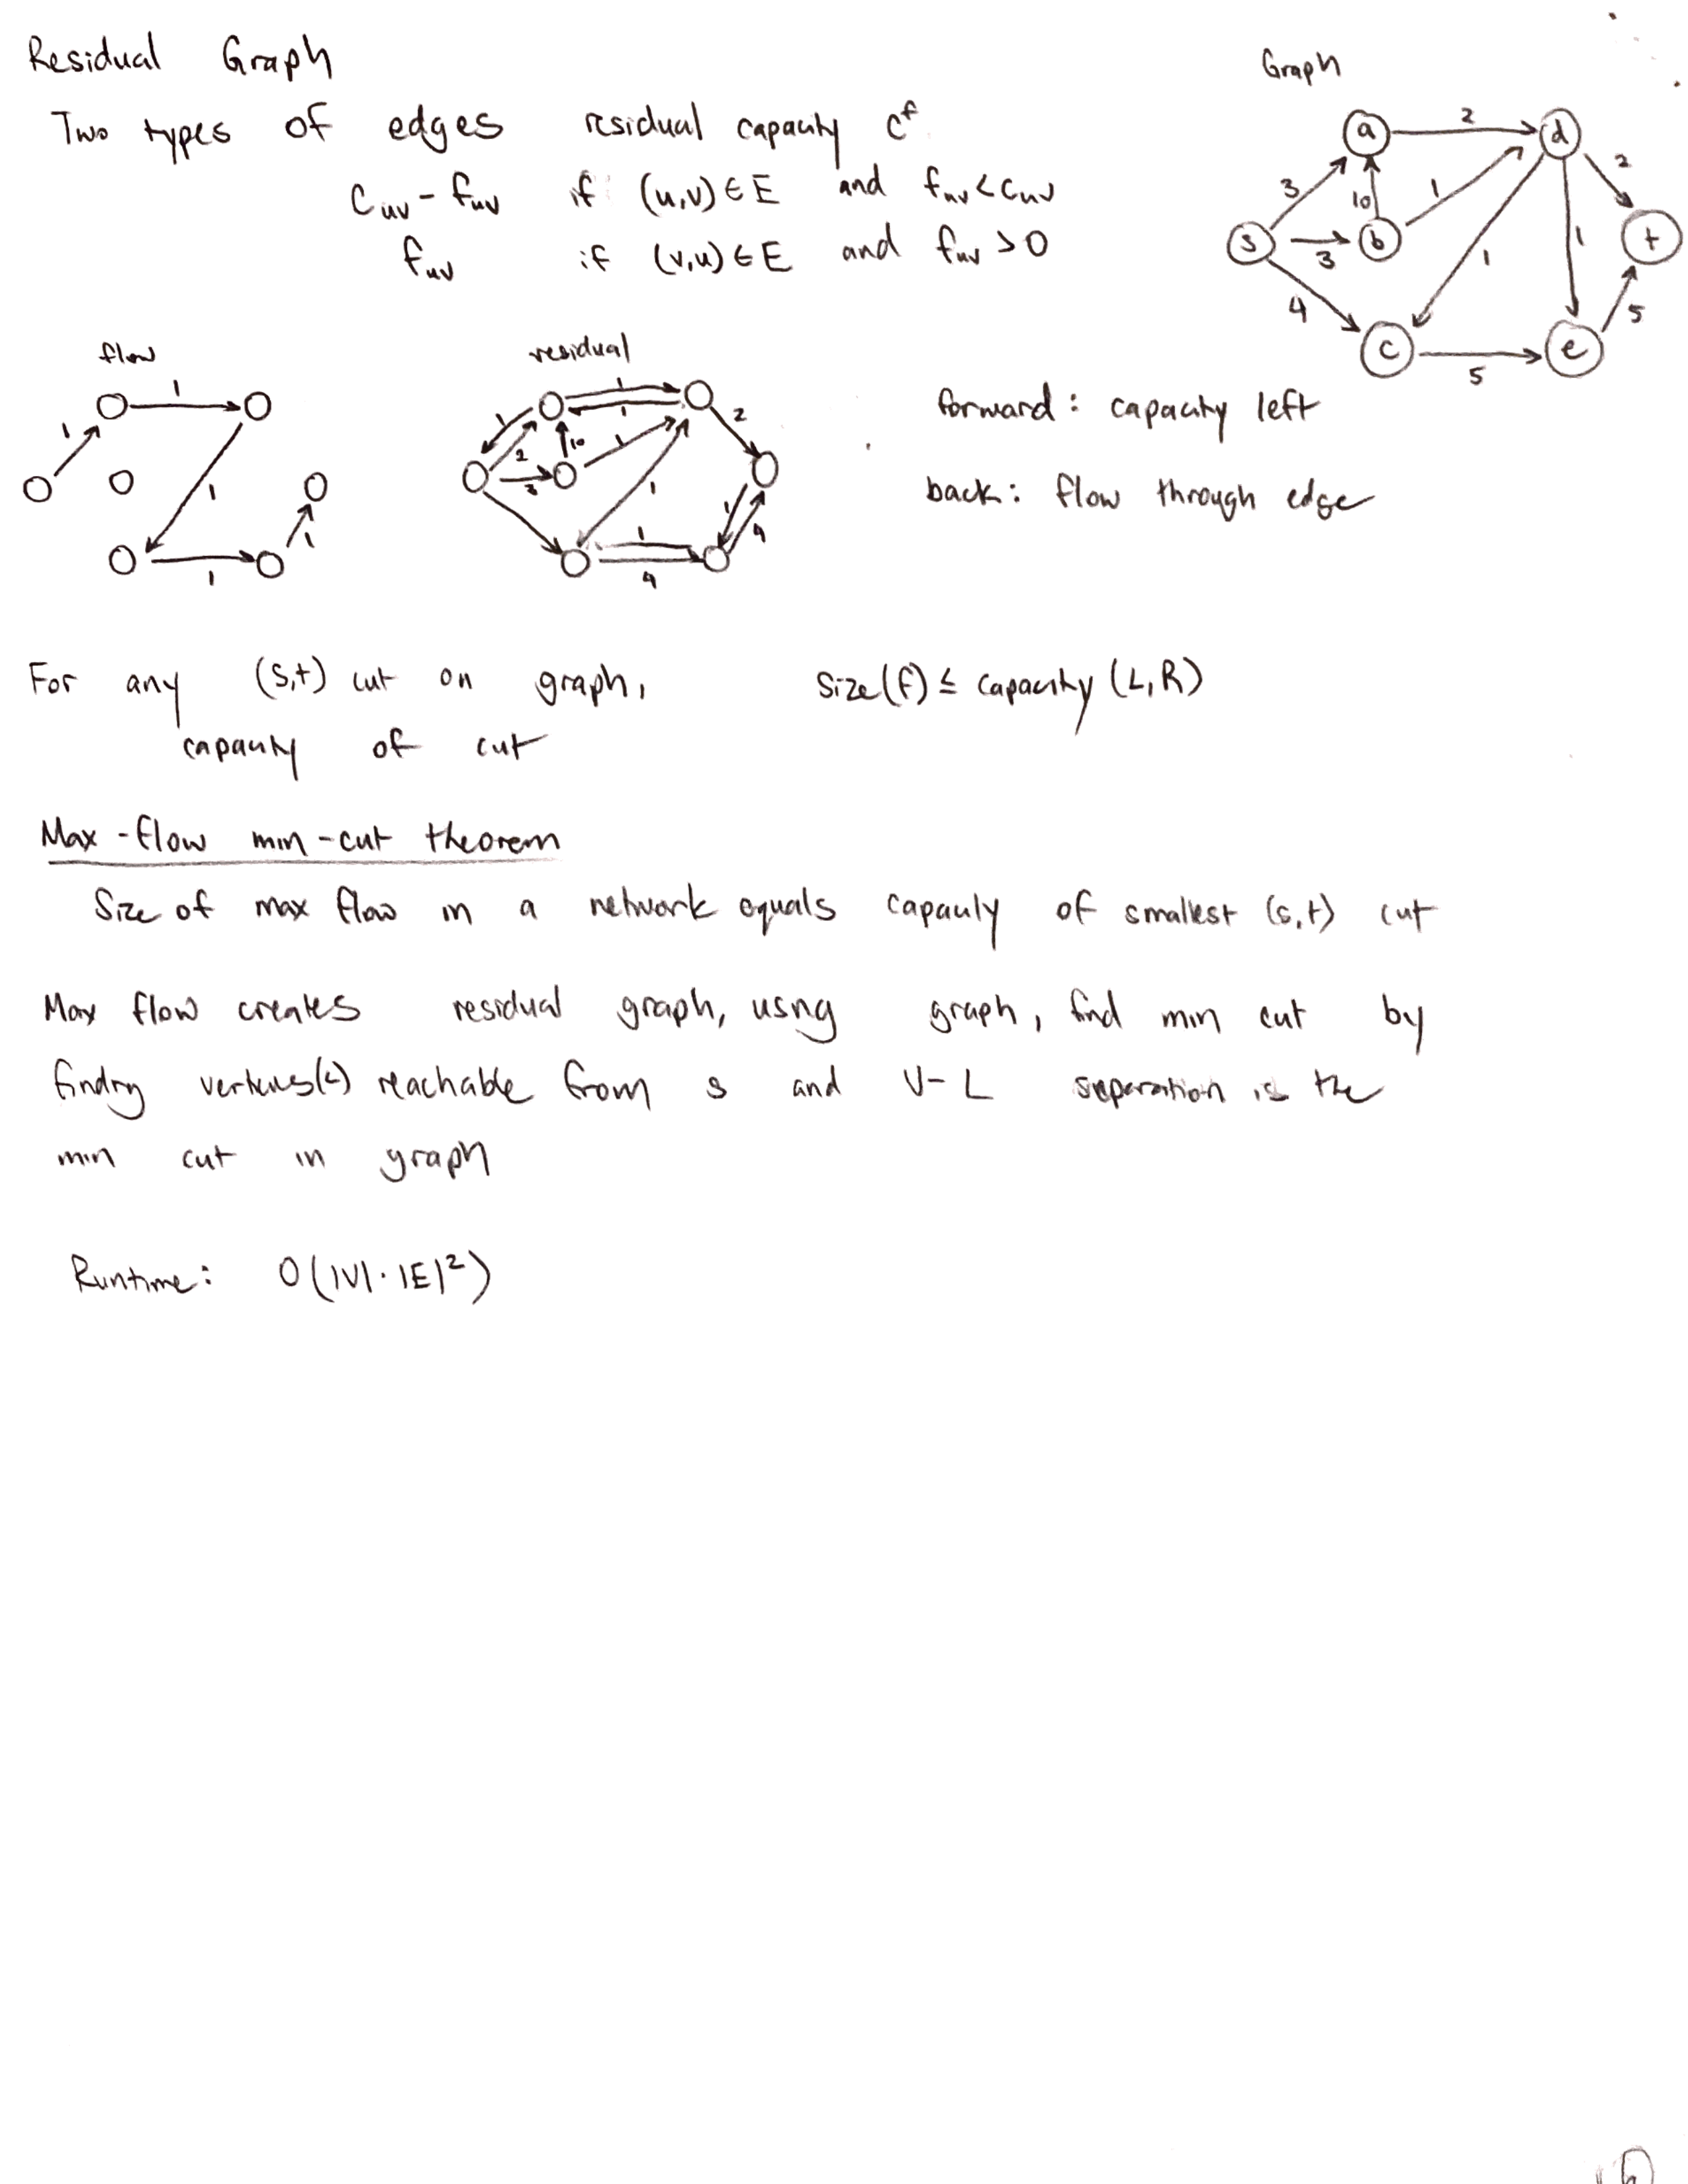 Residual Graph
Two types of edges residual capacity c^f
C_uv - f_uv if (u,v) ∈ E and f_uv < c_uv
f_uv if (v,u) ∈ E and f_uv > 0
Graph
a 2 d
3 10 1 2
s 3 b 1 1 t
4 5
c 5 e
flow
1
1
1
1 1
residual
1
1 1 2
2 10 1
3
1
1 1 4
4
forward: capacity left
back: flow through edge
For any (s,t) cut on graph, size(f) ≤ capacity (L,R)
capacity of cut
Max-flow min-cut theorem
Size of max flow in a network equals capacity of smallest (s,t) cut
Max flow creates residual graph, using graph, find min cut by
finding vertices(L) reachable from s and V-L separation is the
min cut in graph
Runtime: O(|V|·|E|²)